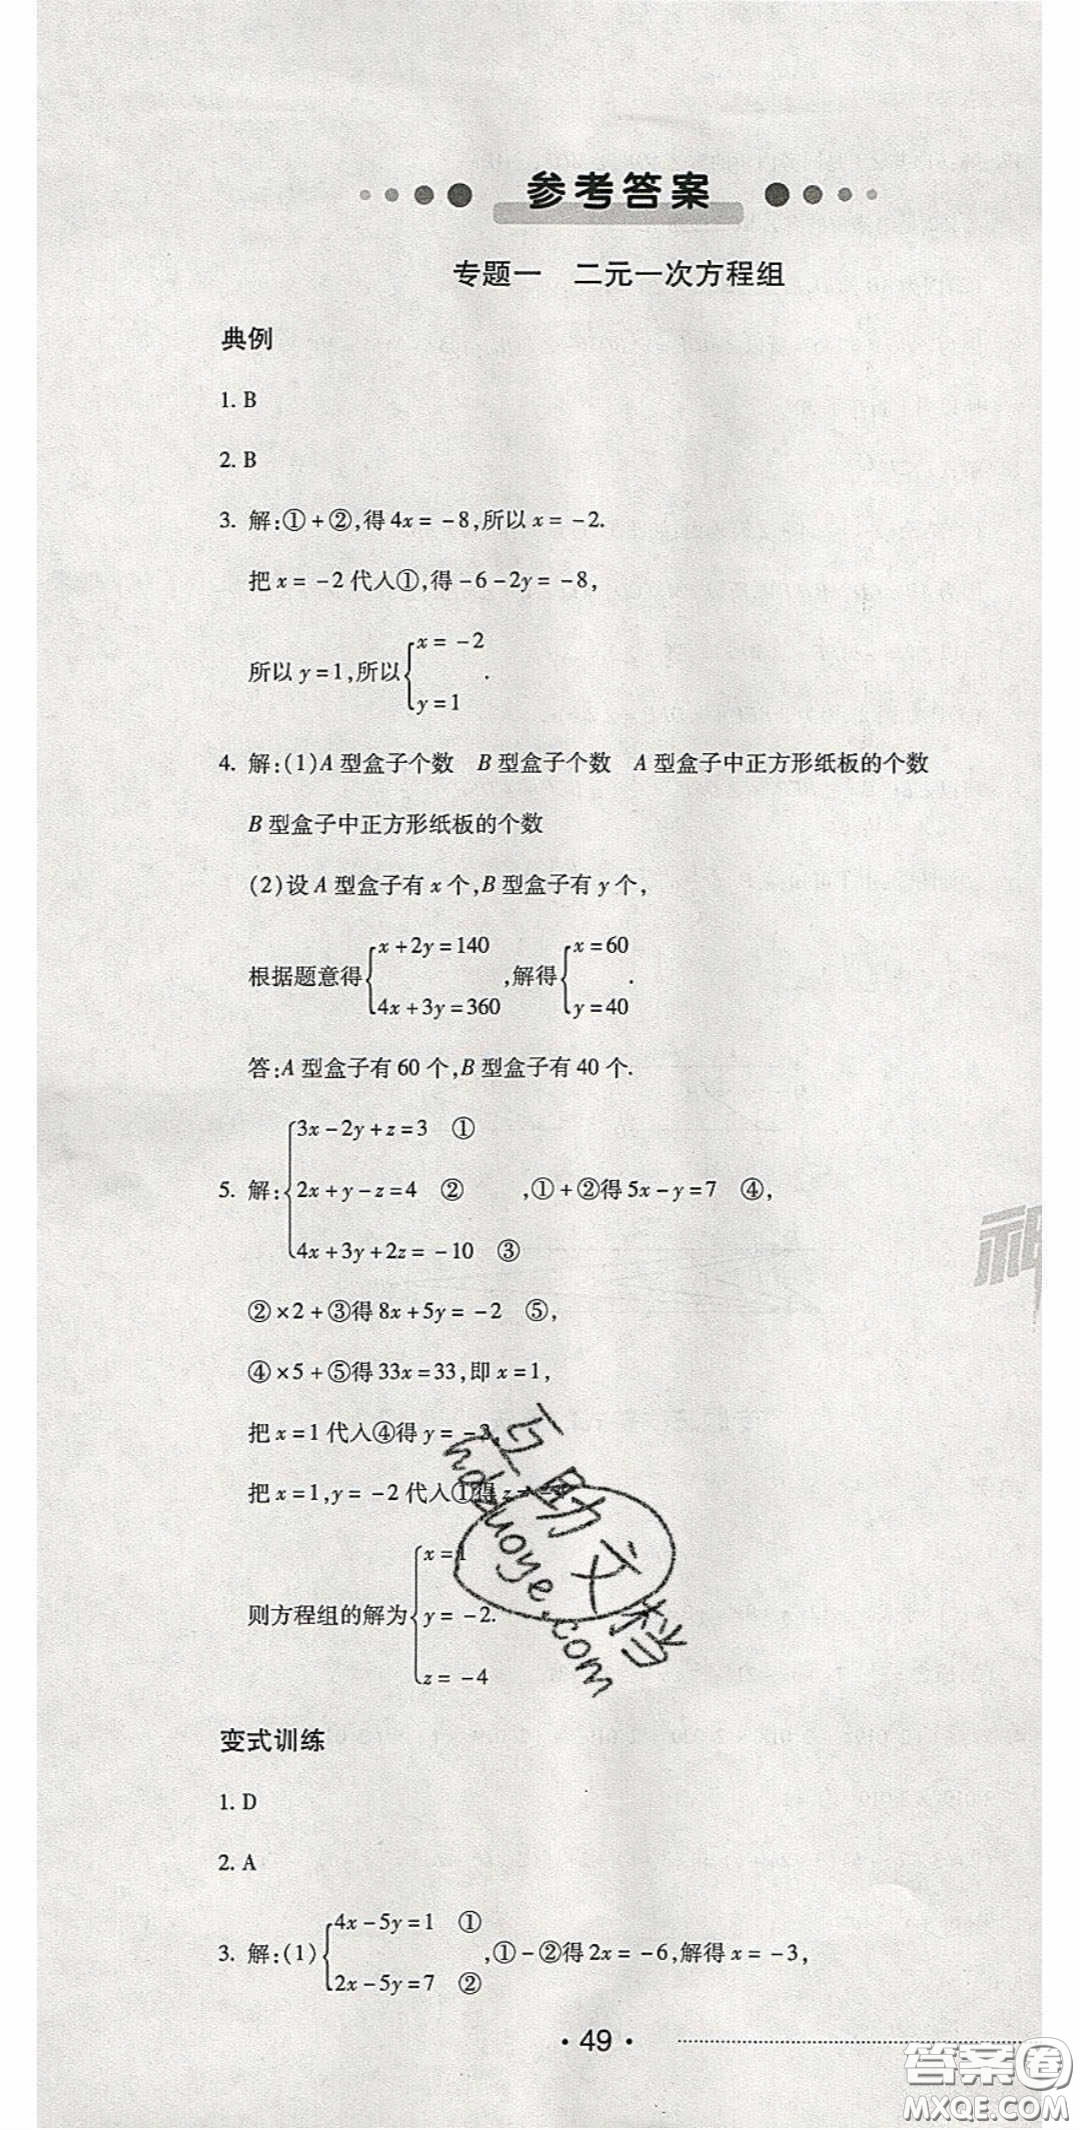 参考答案
专题一 二元一次方程组
典例
1. B
2. B
3. 解:①+②,得4x=-8,所以x=-2.
把x=-2代入①,得-6-2y=-8,
所以y=1,所以{x=-2
y=1.
4. 解:(1)A型盒子个数 B型盒子个数 A型盒子中正方形纸板的个数
B型盒子中正方形纸板的个数
(2)设A型盒子有x个,B型盒子有y个,
根据题意得{x+2y=140
4x+3y=360,解得{x=60
y=40.
答:A型盒子有60个,B型盒子有40个.
5. 解:{3x-2y+z=3 ①
2x+y-z=4 ② ,①+②得5x-y=7 ④,
4x+3y+2z=-10 ③
②×2+③得8x+5y=-2 ⑤,
④×5+⑤得33x=33,即x=1,
把x=1代入④得y=-2,
把x=1,y=-2代入①得z=-4
则方程组的解为{x=1
y=-2.
z=-4
变式训练
1. D
2. A
3. 解:(1){4x-5y=1 ①
2x-5y=7 ②,①-②得2x=-6,解得x=-3,
·49·
神
互助文档
hdzuoye.com
答案卷
MXQE.COM